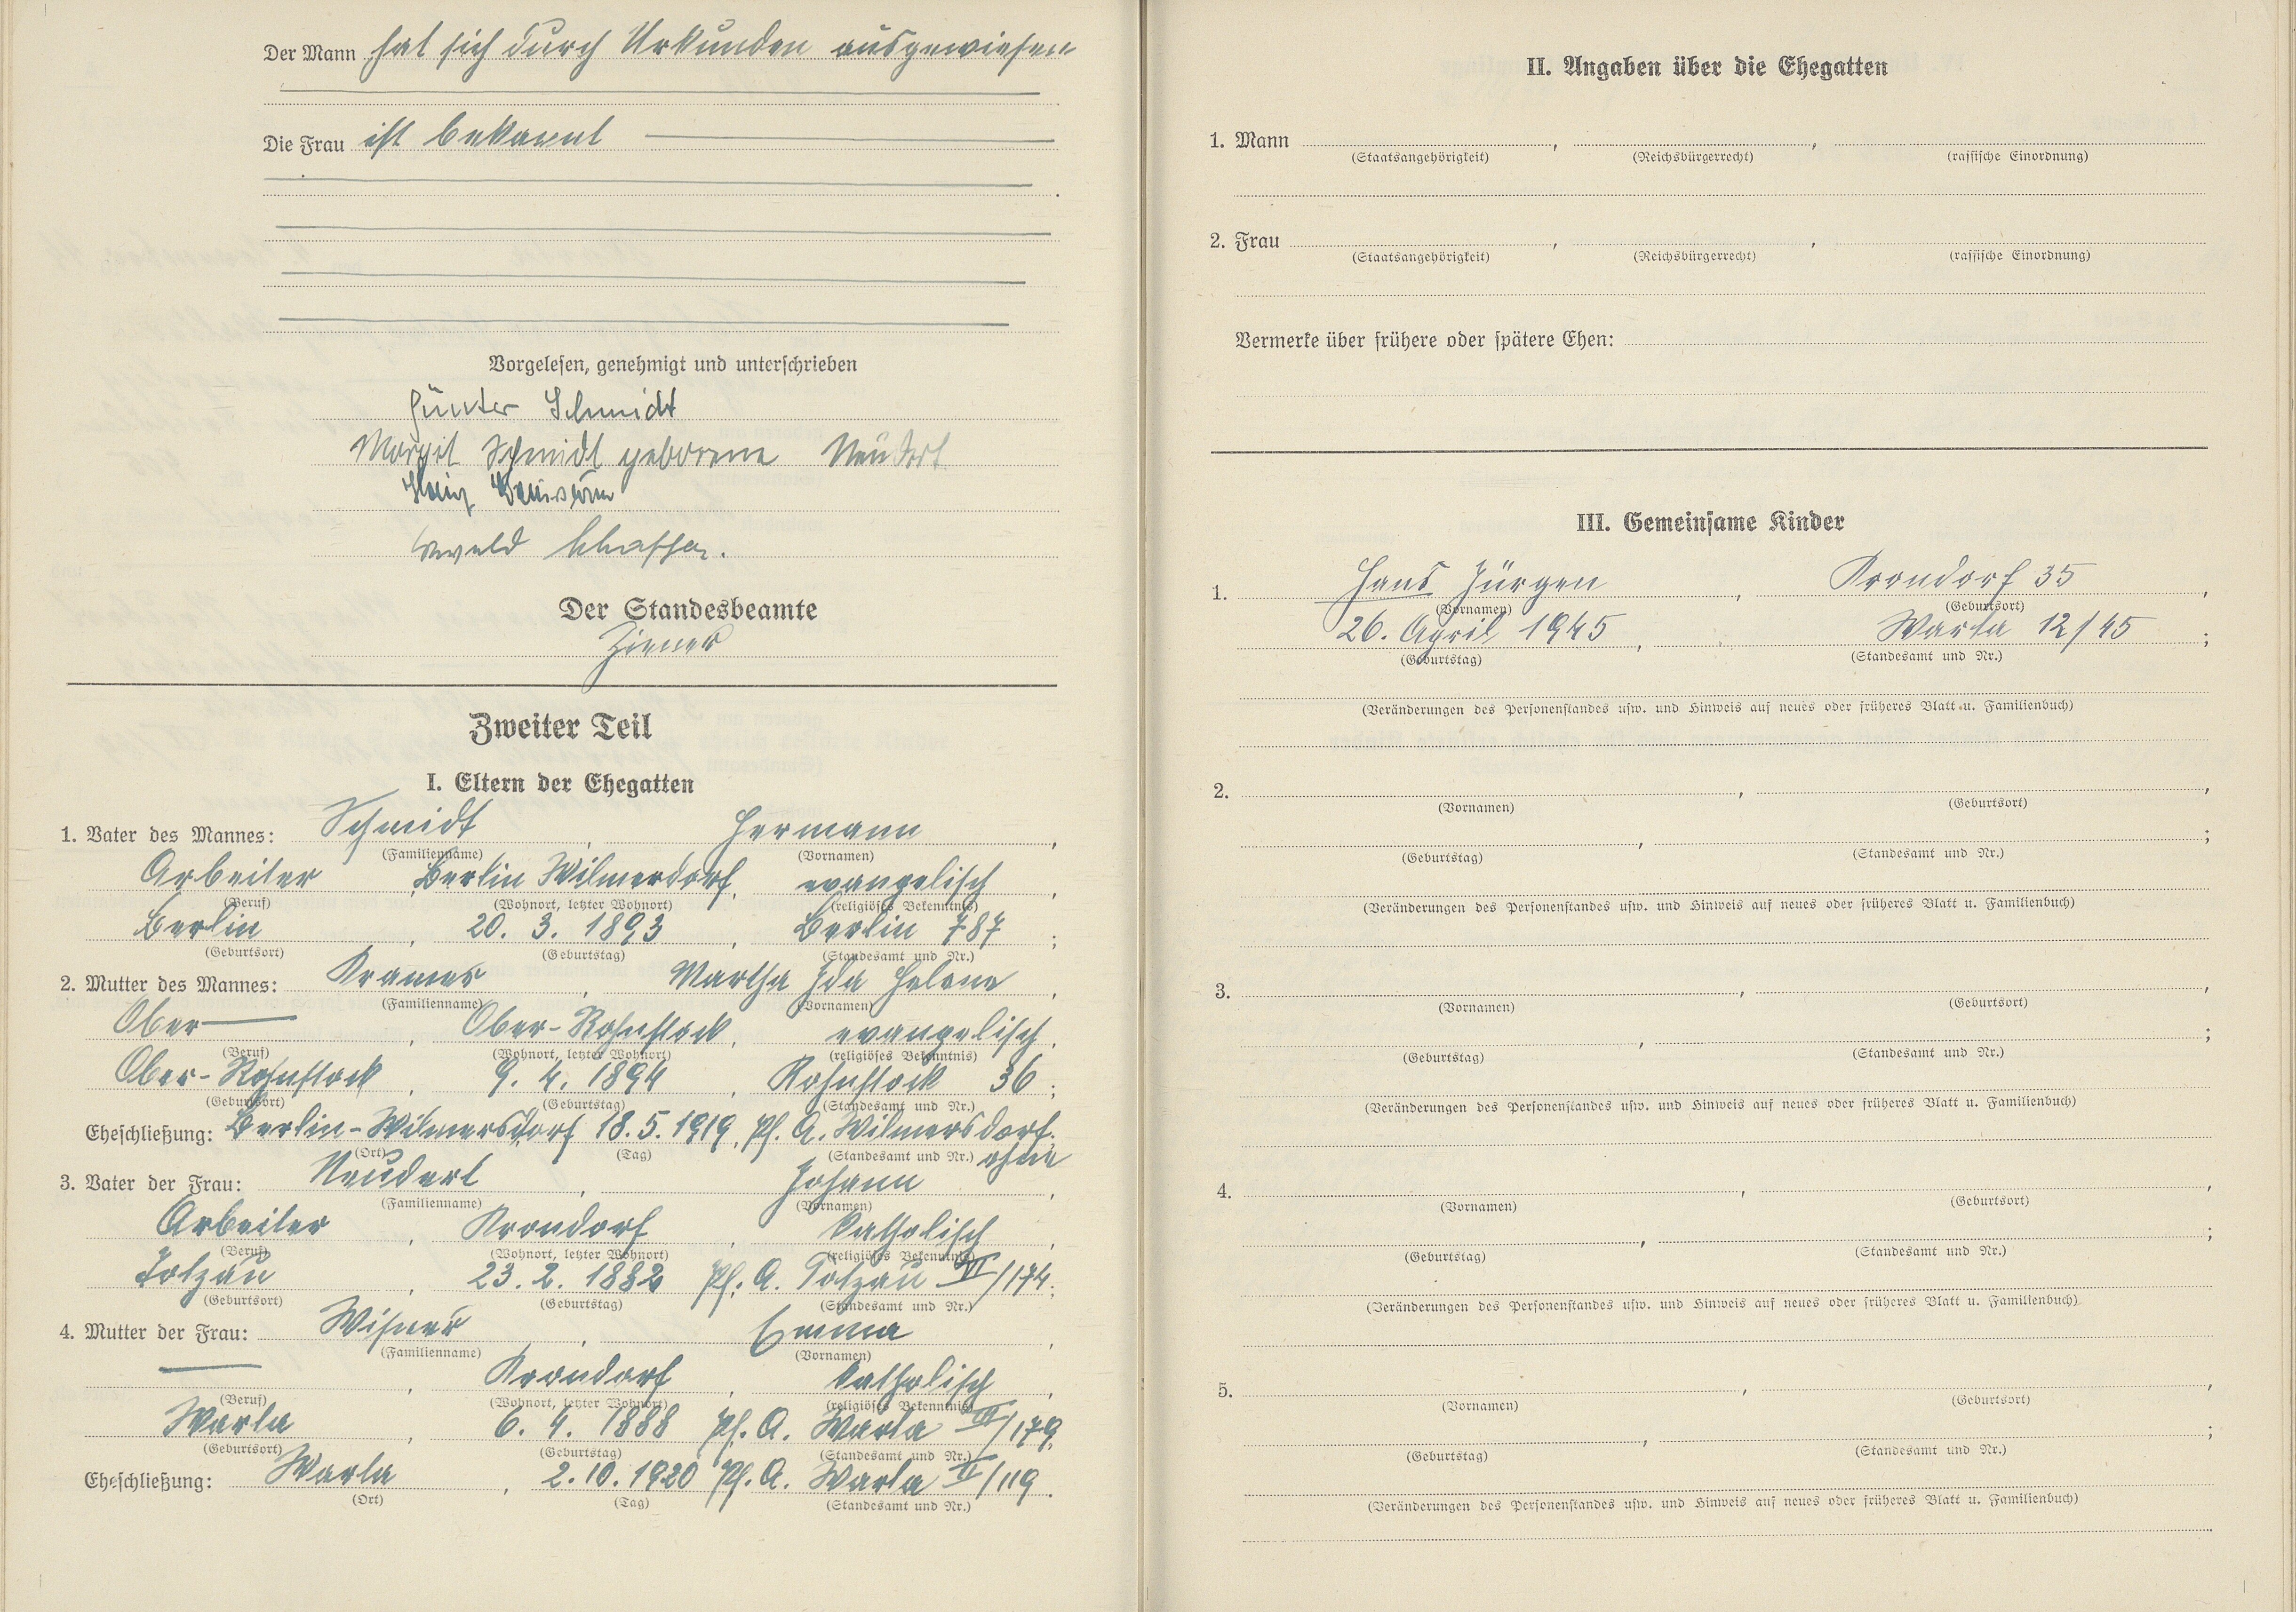 Der Mann hat sich durch Urkunden ausgewiesen
Die Frau ist bekannt
Vorgelesen, genehmigt und unterschrieben
Günter Schmidt
Margit Schmidt geborene Neudert
Der Standesbeamte
Ziener
Zweiter Teil
I. Eltern der Ehegatten
1. Vater des Mannes: Schmidt, Hermann,
(Familienname) (Vornamen)
Arbeiter, Berlin Wilmerdorf, evangelisch,
(Beruf) (Wohnort, letzter Wohnort) (religiöses Bekenntnis)
Berlin, 20. 3. 1893, Berlin 787;
(Geburtsort) (Geburtstag) (Standesamt und Nr.)
2. Mutter des Mannes: Kramer, Martha Ida Helene,
(Familienname) (Vornamen)
Ober—, Ober-Rohnstock, evangelisch,
(Beruf) (Wohnort, letzter Wohnort) (religiöses Bekenntnis)
Ober-Rohnstock, 9. 4. 1894, Rohnstock 36;
(Geburtsort) (Geburtstag) (Standesamt und Nr.)
Eheschließung: Berlin-Wilmersdorf 18. 5. 1919, Pf. A. Wilmersdorf.
(Ort) (Tag) (Standesamt und Nr.) ohne
3. Vater der Frau: Neudert, Johann,
(Familienname) (Vornamen)
Arbeiter, Krondorf, katholisch,
(Beruf) (Wohnort, letzter Wohnort) (religiöses Bekenntnis)
Totzau, 23. 2. 1882 Pf. A. Totzau VI/174;
(Geburtsort) (Geburtstag) (Standesamt und Nr.)
4. Mutter der Frau: Wisner, Emma,
(Familienname) (Vornamen)
—, Krondorf, katholisch,
(Beruf) (Wohnort, letzter Wohnort) (religiöses Bekenntnis)
Warta, 6. 4. 1888 Pf. A. Warta /179.
(Geburtsort) (Geburtstag) (Standesamt und Nr.)
Eheschließung: Warta, 2. 10. 1920 Pf. A. Warta II/119.
(Ort) (Tag) (Standesamt und Nr.)
II. Angaben über die Ehegatten
1. Mann , ,
(Staatsangehörigkeit) (Reichsbürgerrecht) (rassische Einordnung)
2. Frau , ,
(Staatsangehörigkeit) (Reichsbürgerrecht) (rassische Einordnung)
Vermerke über frühere oder spätere Ehen:
III. Gemeinsame Kinder
1. Hans Jürgen, Krondorf 35,
(Vornamen) (Geburtsort)
26. April 1945, Warta 12/45;
(Geburtstag) (Standesamt und Nr.)
(Veränderungen des Personenstandes usw. und Hinweis auf neues oder früheres Blatt u. Familienbuch)
2. , ,
(Vornamen) (Geburtsort)
, ;
(Geburtstag) (Standesamt und Nr.)
(Veränderungen des Personenstandes usw. und Hinweis auf neues oder früheres Blatt u. Familienbuch)
3. , ,
(Vornamen) (Geburtsort)
, ;
(Geburtstag) (Standesamt und Nr.)
(Veränderungen des Personenstandes usw. und Hinweis auf neues oder früheres Blatt u. Familienbuch)
4. , ,
(Vornamen) (Geburtsort)
, ;
(Geburtstag) (Standesamt und Nr.)
(Veränderungen des Personenstandes usw. und Hinweis auf neues oder früheres Blatt u. Familienbuch)
5. , ,
(Vornamen) (Geburtsort)
, ;
(Geburtstag) (Standesamt und Nr.)
(Veränderungen des Personenstandes usw. und Hinweis auf neues oder früheres Blatt u. Familienbuch)